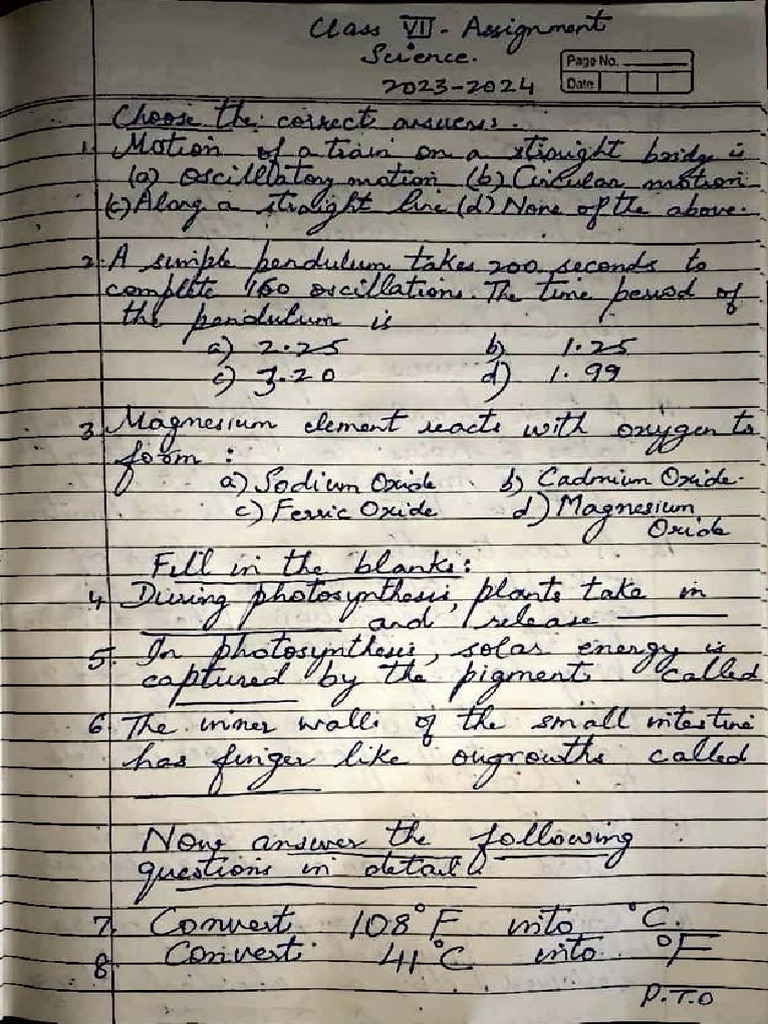 Class VII - Assignment
Science.
Page No.
Date
2023-2024
Choose the correct answers.
1. Motion of a train on a straight bridge is
(a) oscillatory motion (b) Circular motion
(c) Along a straight line (d) None of the above.
2. A simple pendulum takes 200 seconds to
complete 160 oscillations. The time period of
the pendulum is
a) 2.25 b) 1.25
c) 3.20 d) 1.99
3. Magnesium element reacts with oxygen to
form :
a) Sodium Oxide b) Cadmium Oxide.
c) Ferric Oxide d) Magnesium
Oxide
Fill in the blanks:
4. During photosynthesis, plants take in
________ and release ________
5. In photosynthesis, solar energy is
captured by the pigment called
________
6. The inner walls of the small intestine
has finger like ougrowths called
________
Now answer the following
questions in detail.
7. Convert 108°F into °C.
8. Convert 41°C into °F
P.T.O